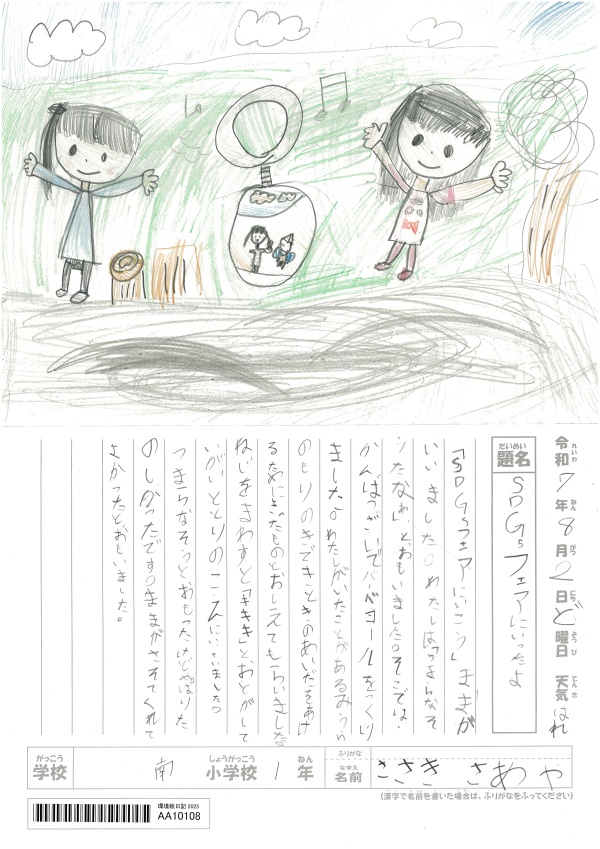 令和7年8月2日ど曜日 天気はれ
題名 SDGsフェアにいったよ
「SDGsフェアにいこう」ままが
いいました。わたしはつまらなそ
うだなぁ、とおもいました。そこでは、
かんばつざいでバードコールをつくり
ました。わたしがいたことがあるみうら
のもりのきできときのあいだをあけ
るためにきったものとおしえてもらいました。
ねじをまわすと「キキキ」とおとがして
いがいととりのこえににていました。
つまらなそうと、おもったけどやぱりた
のしかったです。ままがさそてくれて
よかったとおもいました。
学校 南 小学校 1年 名前 ささき さあや
(漢字で名前を書いた場合は、ふりがなをふってください)
環境絵日記2025
AA10108